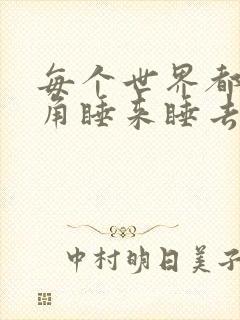 每个世界都
角睡来睡去
中村明日美子